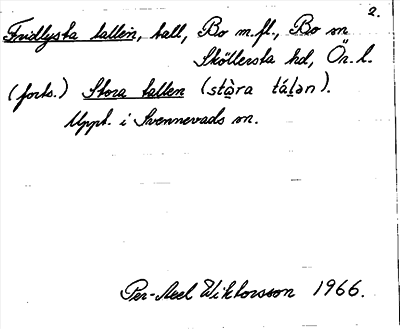 2.
Fridlysta tallen, tall, Bo m.fl., Bo sn
Sköllersta hd, Ör. l.
(forts.) Stora tallen (stὰra tálən).
Uppt. i Svennevads sn.
Per-Axel Wiktorsson 1966.